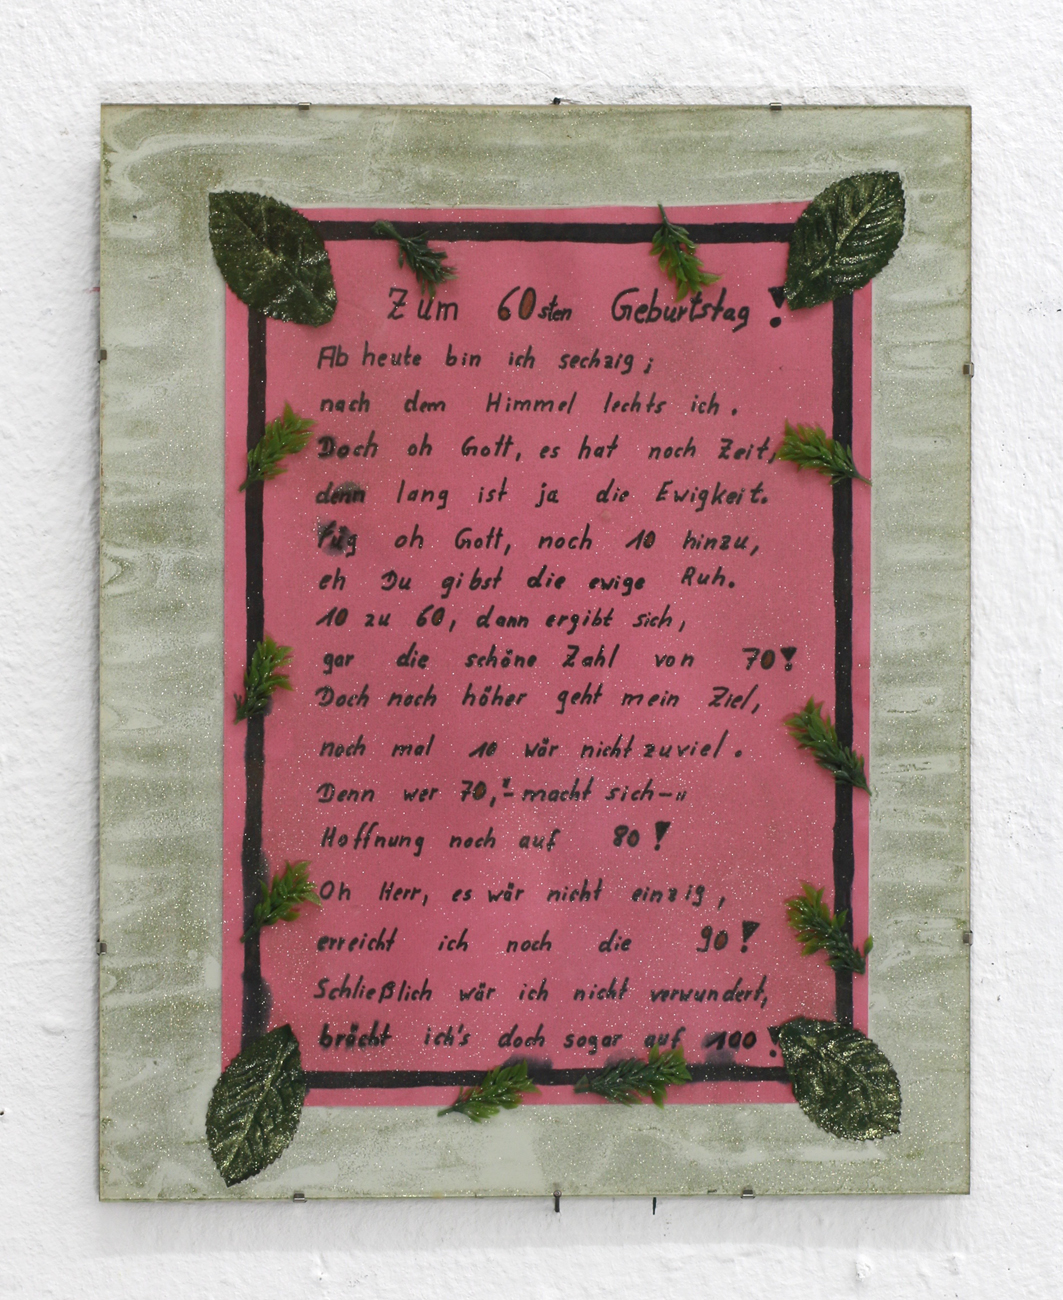 Zum 60sten Geburtstag!
Ab heute bin ich sechzig;
nach dem Himmel lechts ich.
Doch oh Gott, es hat noch Zeit,
denn lang ist ja die Ewigkeit.
Füg oh Gott, noch 10 hinzu,
eh Du gibst die ewige Ruh.
10 zu 60, dann ergibt sich,
gar die schöne Zahl von 70!
Doch noch höher geht mein Ziel,
noch mal 10 wär nicht zuviel.
Denn wer 70,"- macht sich-"
Hoffnung noch auf 80!
Oh Herr, es wär nicht einzig,
erreicht ich noch die 90!
Schließlich wär ich nicht verwundert,
brächt ich's doch sogar auf 100!